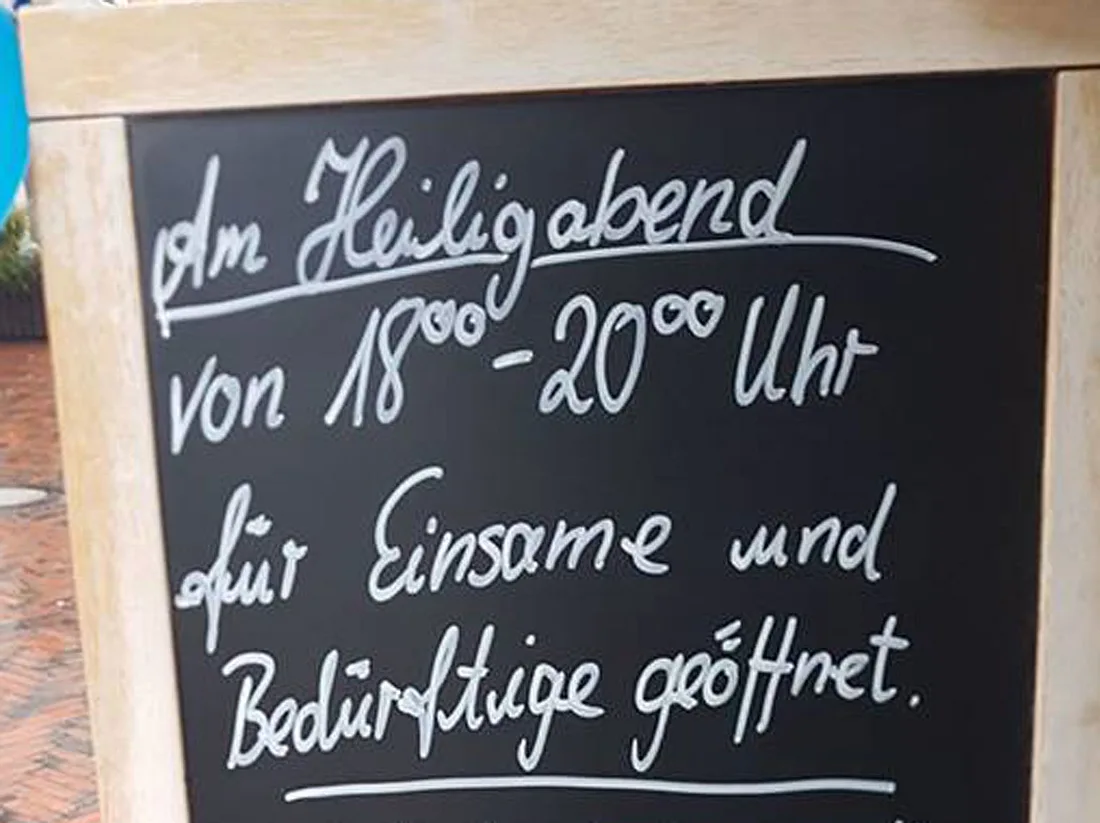 Am Heiligabend
von 18⁰⁰-20⁰⁰ Uhr
für Einsame und
Bedürftige geöffnet.